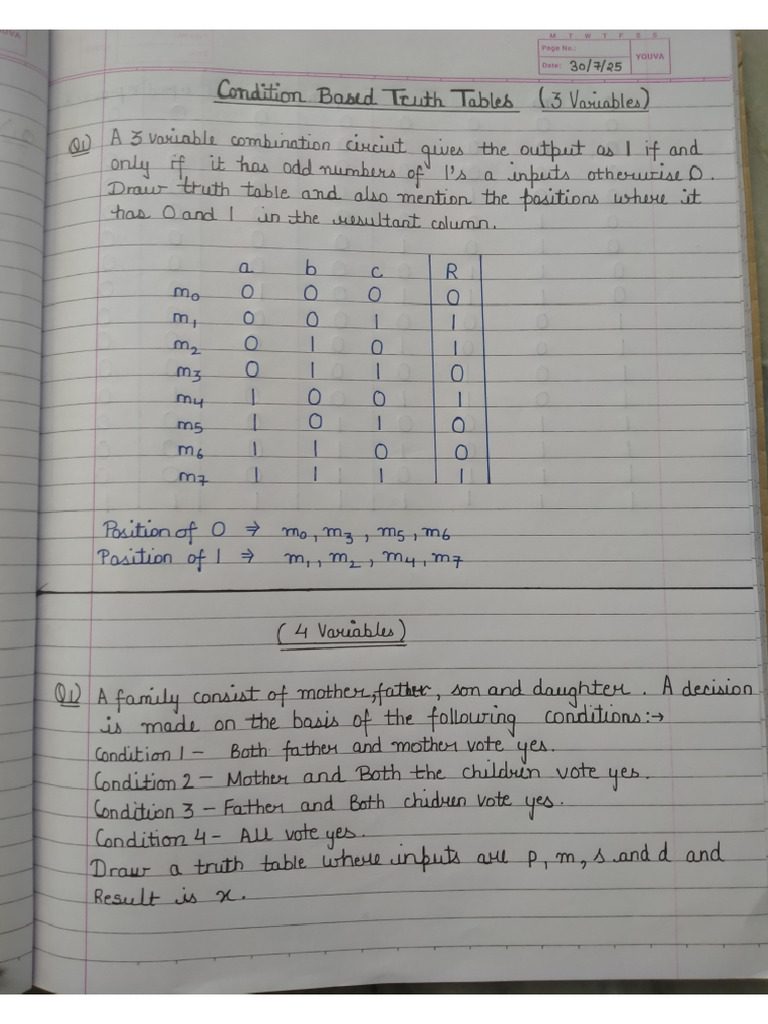 M T W T F S S
Page No.:
Date: 30/7/25
YOUVA
Condition Based Truth Tables (3 Variables)
Q1) A 3 variable combination circuit gives the output as 1 if and
only if it has odd numbers of 1's a inputs otherwise 0.
Draw truth table and also mention the positions where it
has 0 and 1 in the resultant column.
a b c R
m0 0 0 0 0
m1 0 0 1 1
m2 0 1 0 1
m3 0 1 1 0
m4 1 0 0 1
m5 1 0 1 0
m6 1 1 0 0
m7 1 1 1 1
Position of 0 ⇒ m0, m3, m5, m6
Position of 1 ⇒ m1, m2, m4, m7
(4 Variables)
Q1) A family consist of mother, father, son and daughter. A decision
is made on the basis of the following conditions:→
Condition 1 – Both father and mother vote yes.
Condition 2 – Mother and Both the children vote yes.
Condition 3 – Father and Both chidren vote yes.
Condition 4 – All vote yes.
Draw a truth table where inputs are p, m, s and d and
Result is x.